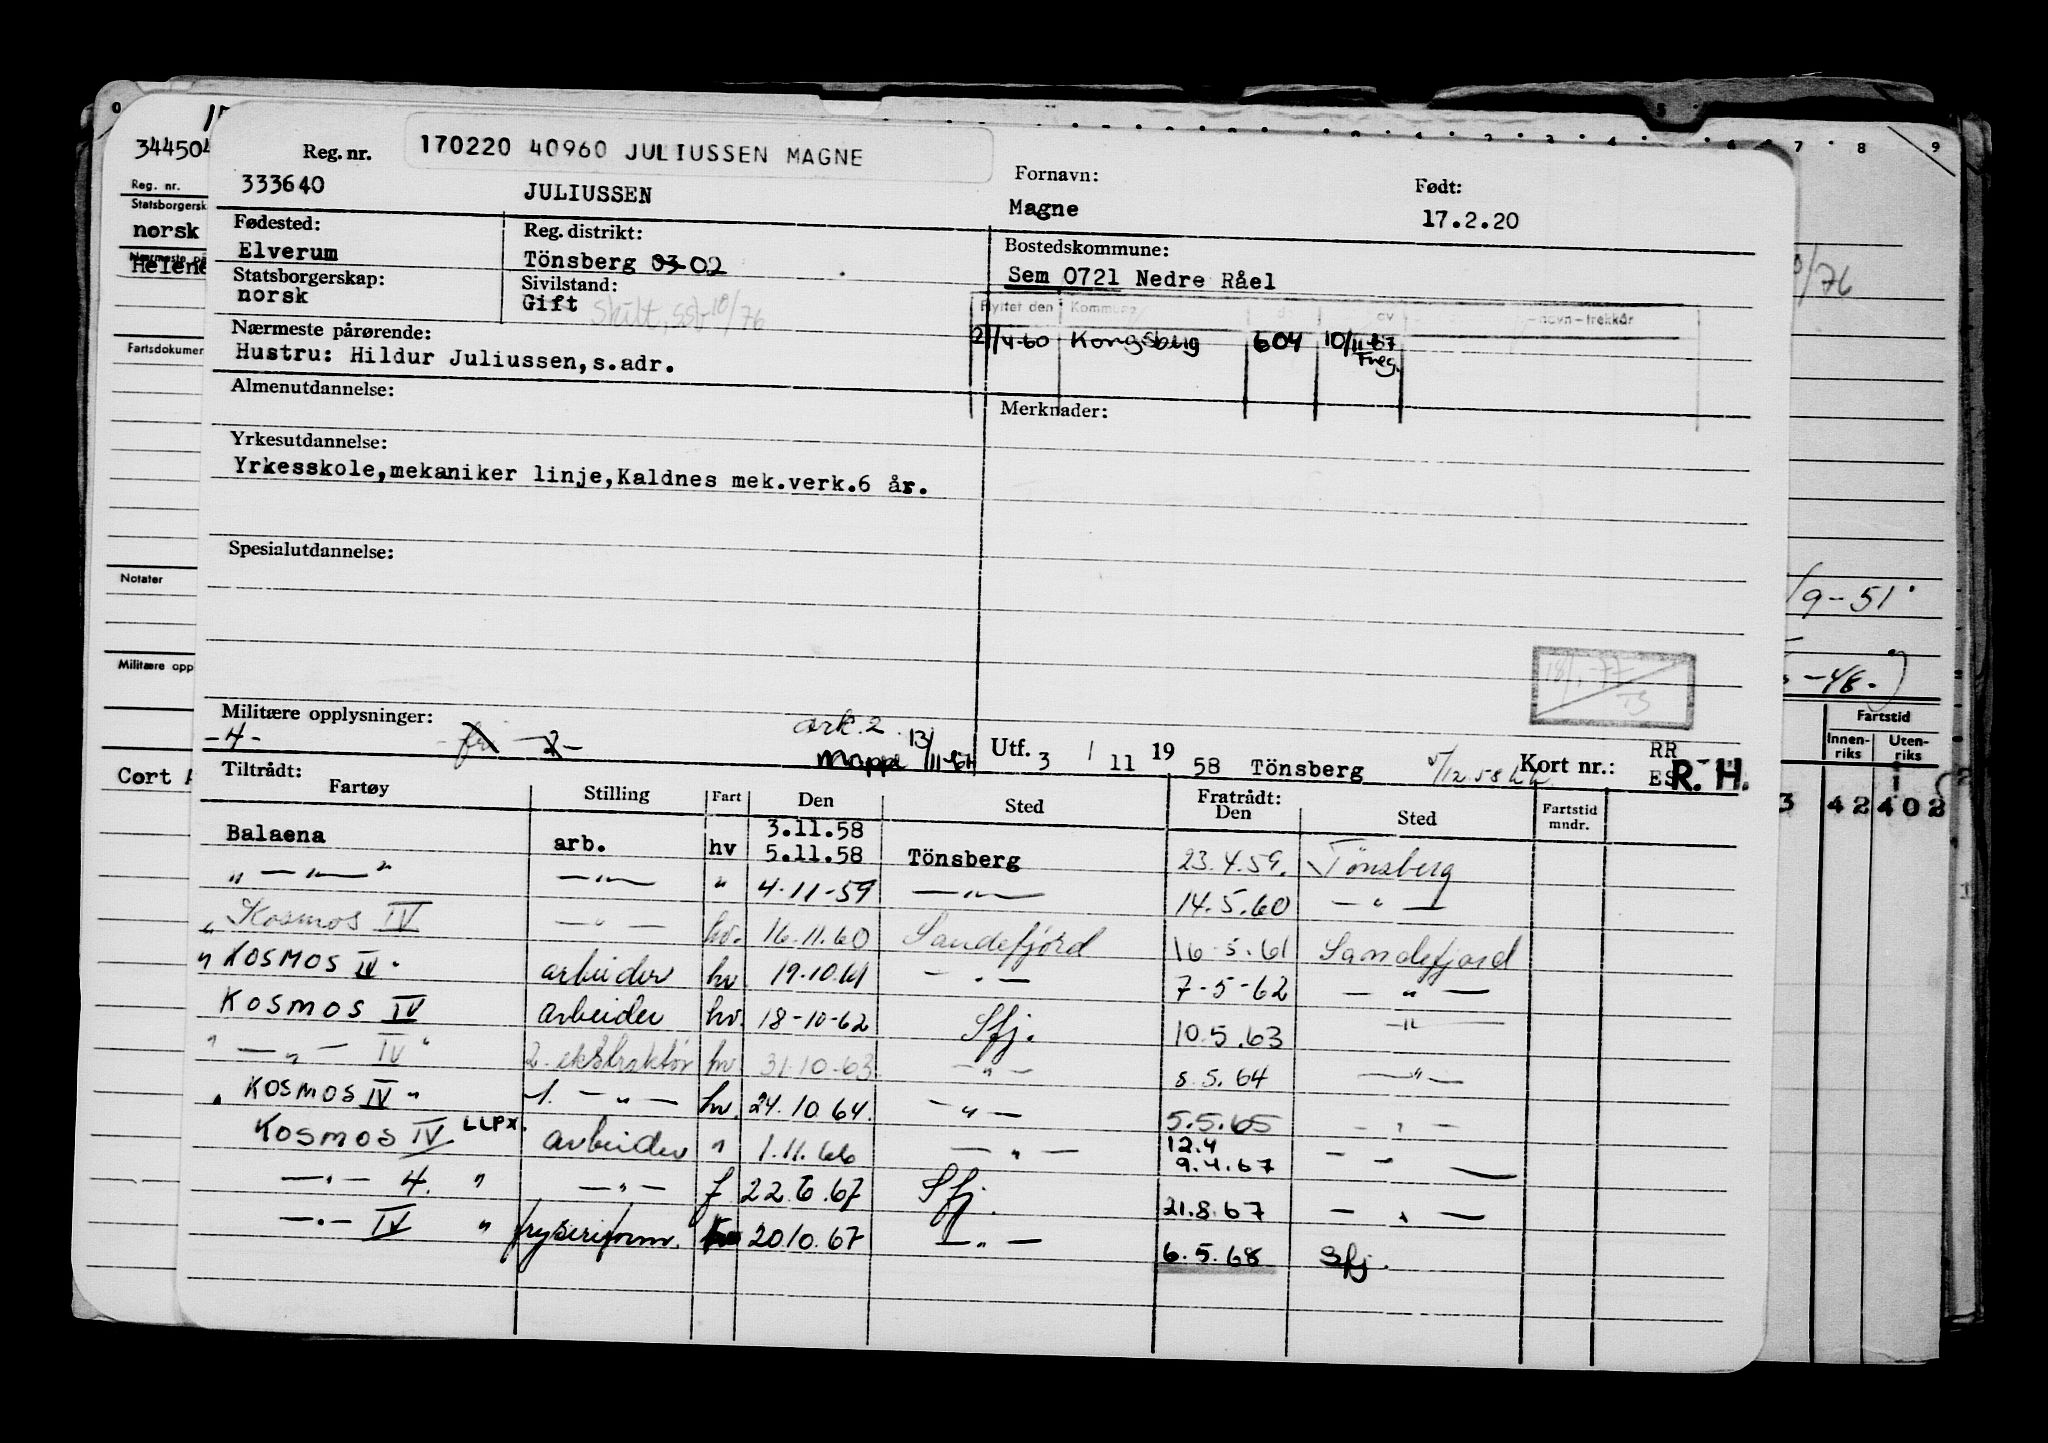 170220 40960 JULIUSSEN MAGNE
Reg. nr.
333640
JULIUSSEN
Fornavn:
Magne
Født:
17.2.20
Fødested:
Elverum
Reg. distrikt:
Tönsberg 03 02
Bostedskommune:
Sem 0721 Nedre Råel
Statsborgerskap:
norsk
Sivilstand:
Gift
10/76
Flyttet den Kommune
navn - trekkår
Nærmeste pårørende:
Hustru: Hildur Juliussen, s.adr.
21/4-60 Kongsberg 604 10/11-67
Freg.
Almenutdannelse:
Merknader:
Yrkesutdannelse:
Yrkesskole, mekaniker linje, Kaldnes mek.verk. 6 år.
Spesialutdannelse:
Militære opplysninger:
-4- -2-
ark. 2
Mappe 13/11-61
Utf. 3 / 11 19 58 Tönsberg
5/12 58
Kort nr.: RR
ES R. H.
Tiltrådt:
Fartøy Stilling Fart Den Sted
Fratrådt:
Den Sted Fartstid mndr.
Balaena arb. hv 3.11.58
5.11.58 Tönsberg 23.4.59. Tönsberg
" — " — " — " — " 4-11-59 — " — 14.5.60 — " —
" Kosmos IV — " — hv. 16.11.60 Sandefjord 16-5-61 Sandefjord
" KOSMOS IV " arbeider hv 19.10.61 — " — 7-5-62 — " —
KOSMOS IV arbeider hv. 18-10-62 Sfj. 10.5.63 — " —
" — " — IV " 2. ekstraktør hv 31.10.63. — " — 8.5.64 — " —
" KOSMOS IV " 1. — " — hv. 24.10.64. — " — 5.5.65 — " —
KOSMOS IV LLPX. arbeider " 1.11.66 — " — 12.4
9.4.67 — " —
— " — 4. " — " — f 22.6.67 Sfj. 21.8.67 — " —
— " — IV " fryseriform. hv 20.10.67 — " — 6.5.68 Sfj.
344504
Reg. nr.
Statsborgersk
norsk
Nærmeste på
Helene
Fartsdokumen
Notater
Militære opp
Cort
0
7 8 9
/76
/9-51
-48.
Fartstid
Innen-riks Uten-riks
3 42 402